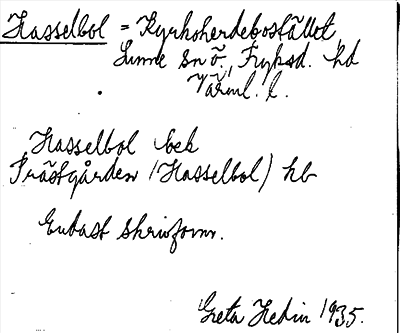 Hasselbol = Kyrkoherdebostället
Sunne sn ö., Fryksd. hd
Värml. l.
Hasselbol bek
Prästgården (Hasselbol) hb
Endast skriftform.
Greta Hedin 1935.